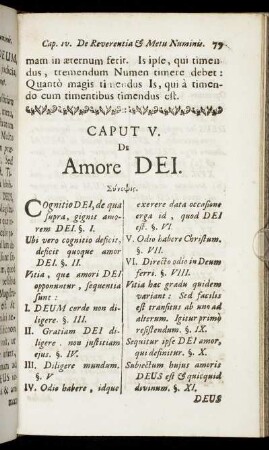 Cap. IV. De Reverentia & Metu Numinis. 77
mam in æternum ferit. Is ipse, qui timen-
dus, tremendum Numen timere debet:
Quantò magis timendus Is, qui à timen-
do cum timentibus timendus est.
CAPUT V.
De
Amore DEI.
Σύνοψις.
Cognitio DEI, de qua
supra, gignit amo-
rem DEI. §. I.
Ubi vero cognitio deficit,
deficit quoque amor
DEI. §. II.
Vitia, quæ amori DEI
opponuntur, sequentia
sunt:
I. DEUM corde non di-
ligere. §. III.
II. Gratiam DEI di-
ligere, non justitiam
ejus. §. IV.
III. Diligere mundum.
§. V
IV. Odio habere, idque
exerere data occasione
erga id, quod DEI
est. §. VI
V. Odio habere Christum.
§. VII.
VI. Directo odio in Deum
ferri. §. VIII.
Vitia hæc gradu quidem
variant: Sed facilis
est transitus ab uno ad
alterum. Igitur primo
resistendum. §. IX.
Sequitur ipse DEI amor,
qui definitur. §. X.
Subjectum hujus amoris
DEUS est & quicquid
divinum. §. XI.
DEUS